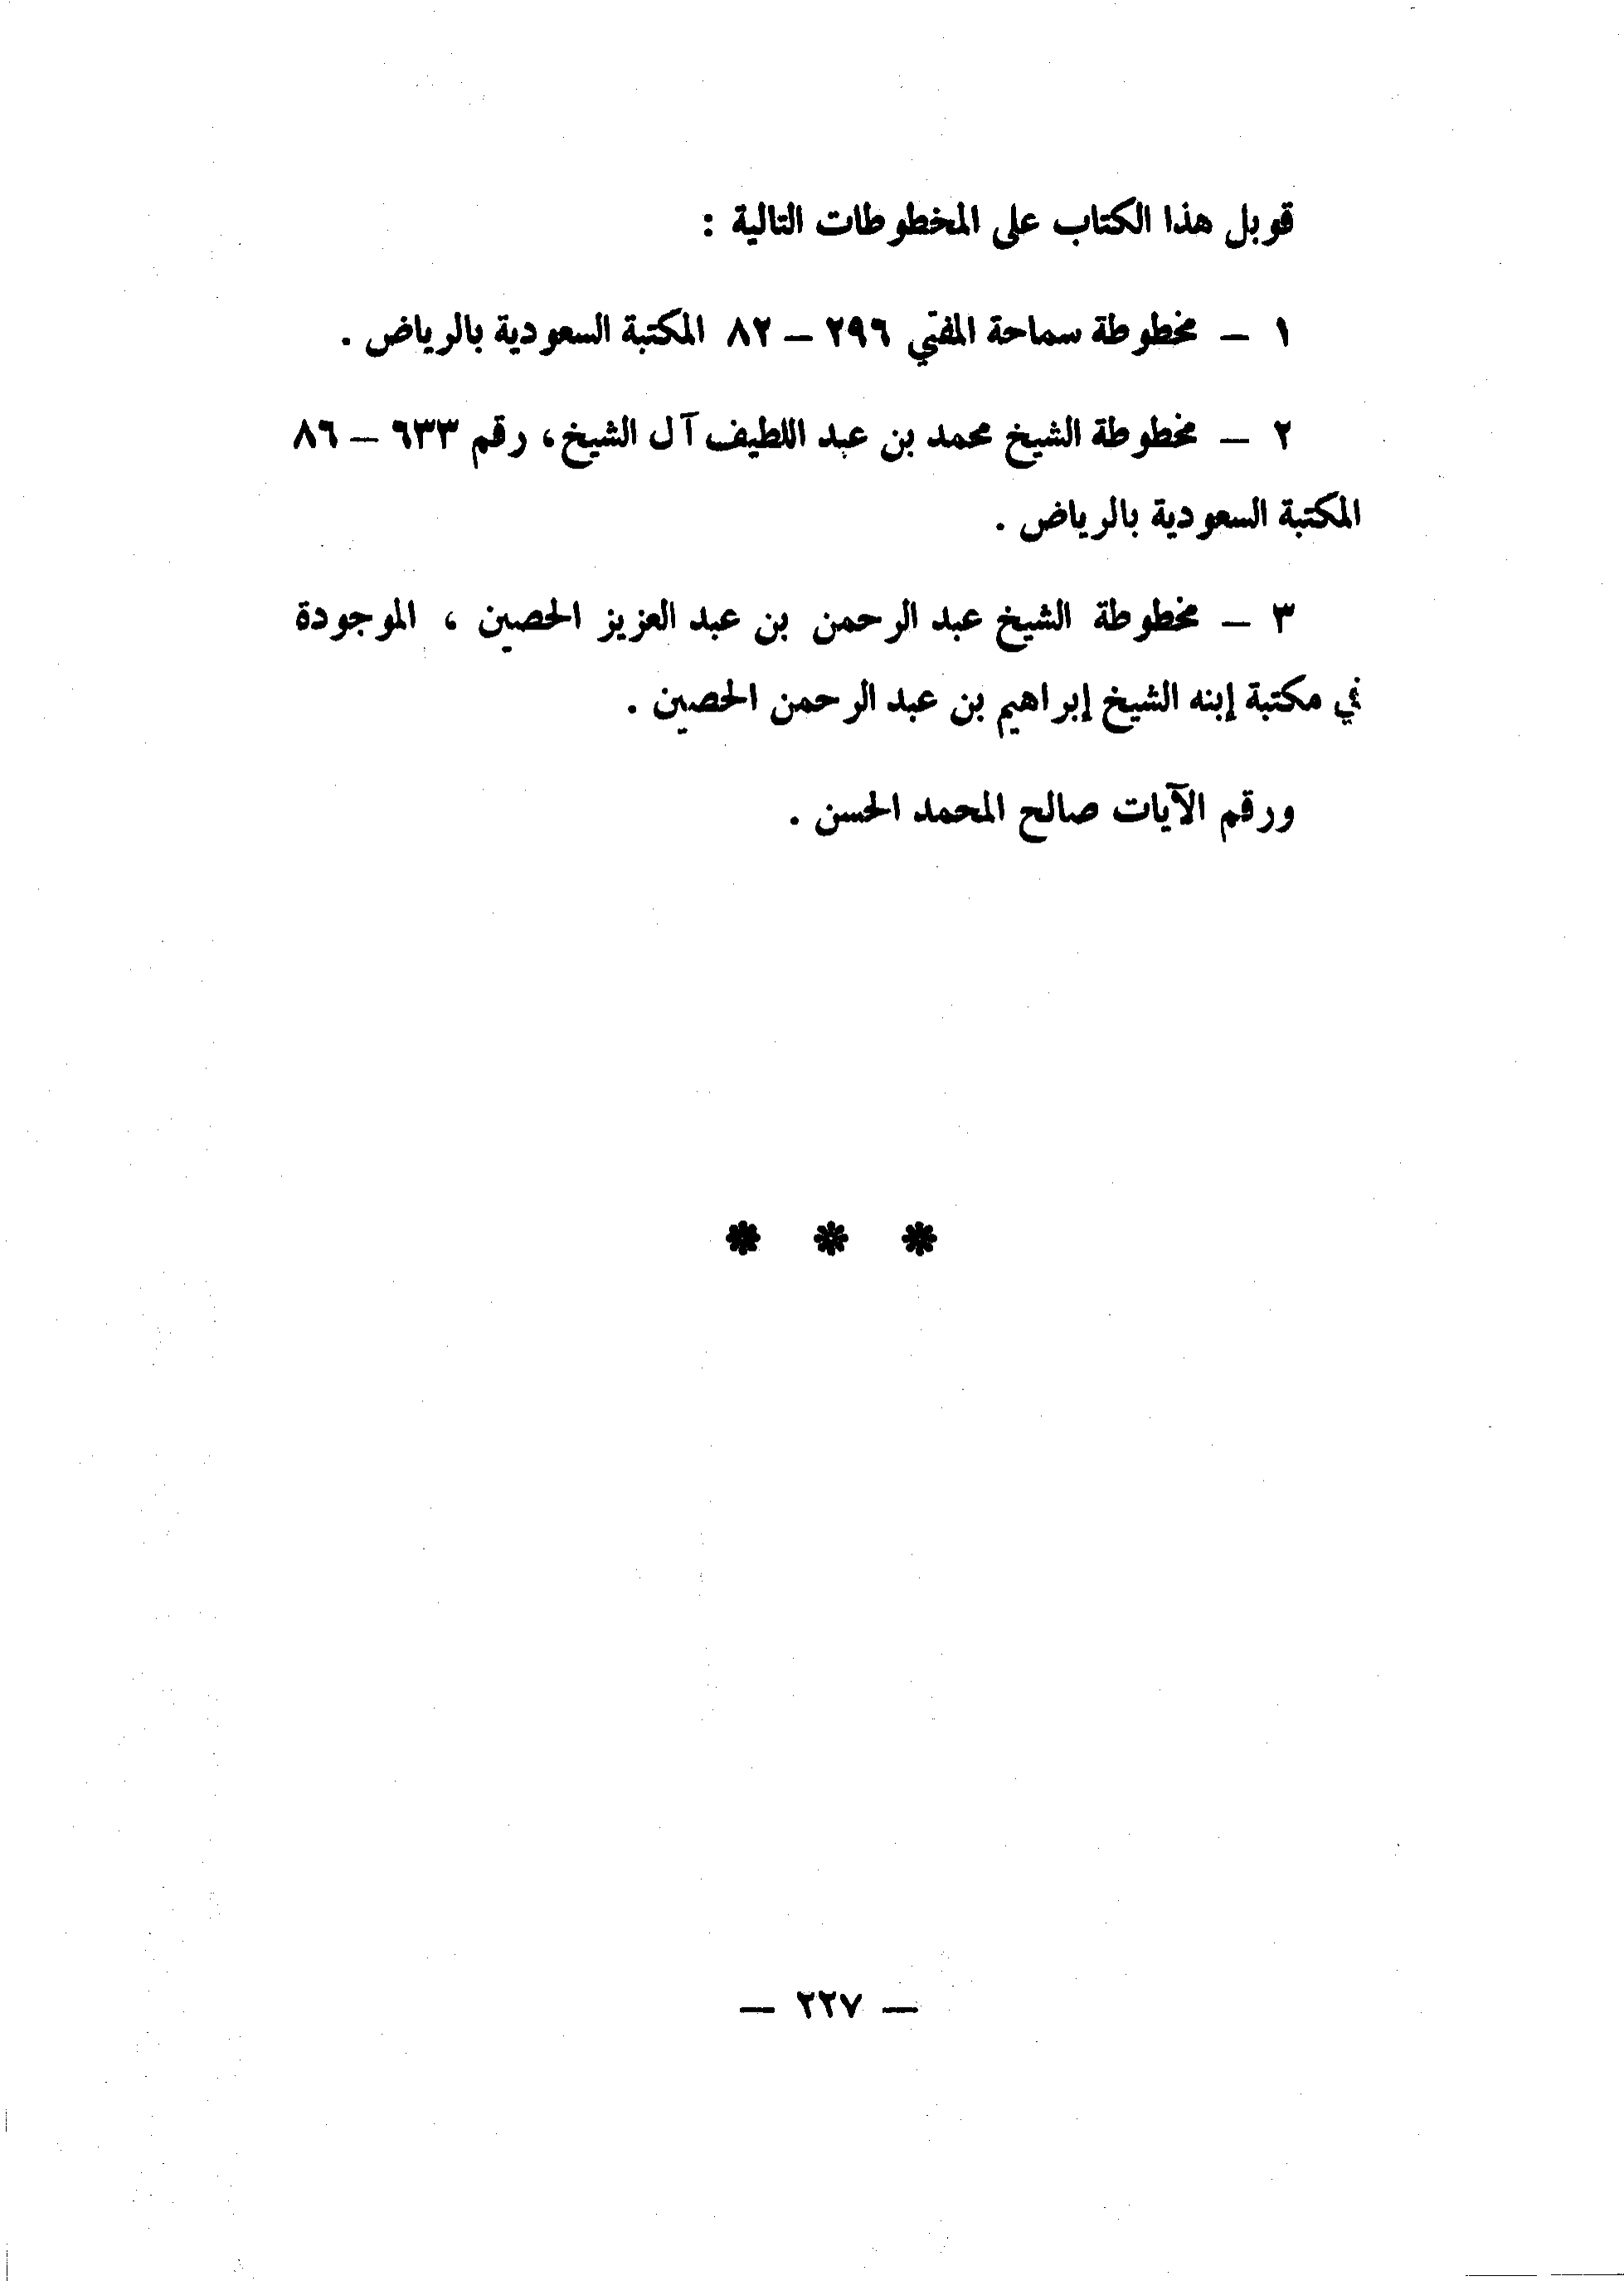 قوبل هذا الكتاب على المخطوطات التالية :
١ – مخطوطة سماحة المفتي ٢٩٦ – ٨٢ المكتبة السعودية بالرياض .
٢ – مخطوطة الشيخ محمد بن عبد اللطيف آل الشيخ، رقم ٦٣٣ – ٨٦
المكتبة السعودية بالرياض .
٣ – مخطوطة الشيخ عبد الرحمن بن عبد العزيز الحصين ، الموجودة
في مكتبة إبنه الشيخ إبراهيم بن عبد الرحمن الحصين .
ورقم الآيات صالح المحمد الحسن .
* * *
– ٢٢٧ –